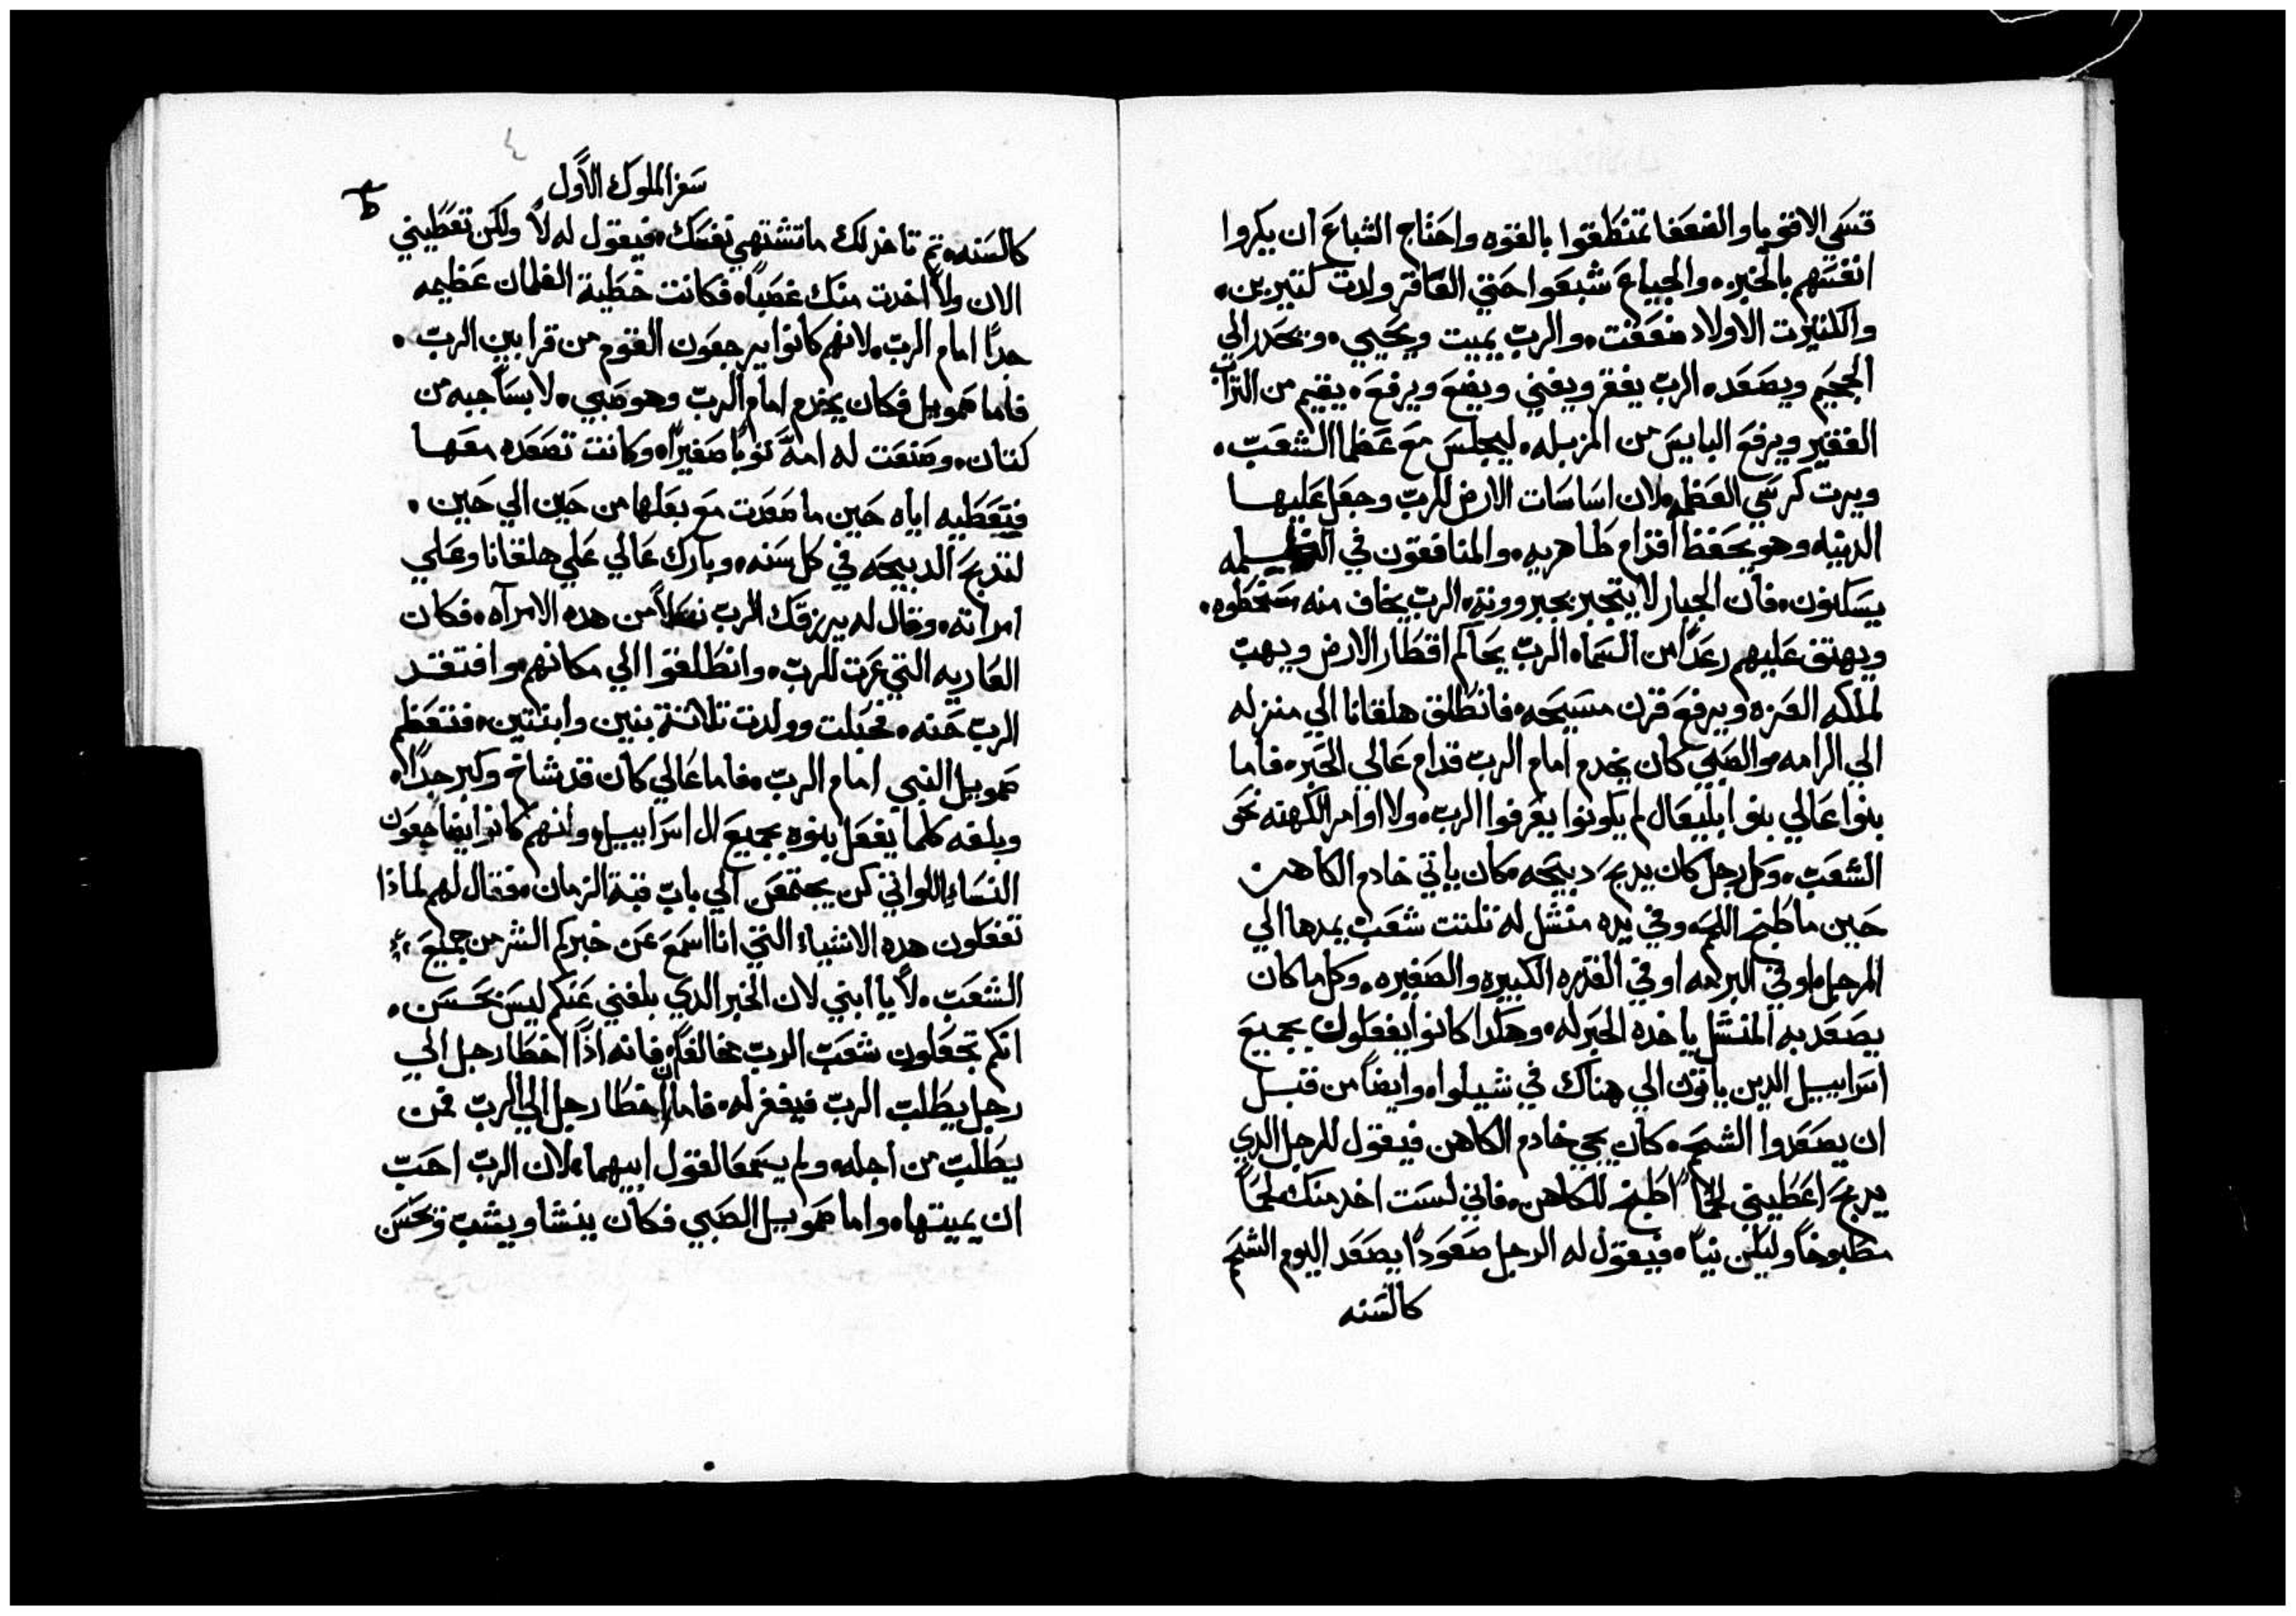 قسي الاقويا والضعفا تمنطقوا بالقوه واحتاج الشباع ان يكروا
انفسهم بالخبز. والجياع شبعوا حتي العاقر ولدت كثيرين.
والكثيرت الاولاد ضعفت. والرب يميت ويحيي. ويحدر الي
الجحيم ويصعد. الرب يفقر ويغني ويضع ويرفع. يقيم من التراب
الفقير ويرفع البايس من المزبله. ليجلس مع عظما الشعب.
ويرت كرسي العظمه لان اساسات الارض للرب وجعل عليها
الدينيه وهو يحفظ اقدام طاهريه. والمنافقون في الظلمه
يسكنون. فان الجبار لا يتجبر بجبروونته. الرب يخاف منه سخطوه.
ويهتف عليهم رعدًا من السما. الرب يحاكم اقطار الارض ويهب
لملكه العزه ويرفع قرن مسيحه. فانطلق هلقانا الي منزله
الي الرامه. والصبي كان يخدم امام الرب قدام عالي الحبر. فاما
بنوا عالي بنوا بليعال لم يكونوا يعرفوا الرب. ولا اوامر الكهنه نحو
الشعب. وكل رجل كان يدبح دبيحه. كان ياتي خادم الكاهن
حين ما طبخ اللحم. وفي يده منشل له تلتت شعب يمدها الي
المرجل او في البرمه او في القدره الكبيره والصغيره. وكل ما كان
يصعد به المنشل ياخده الحبر له. وهكدا كانوا يفعلون بجميع
اسراييل الدين ياتون الي هناك في شيلوا. وايضًا من قبل
ان يصعدوا الشحم. كان يجي خادم الكاهن فيقول للرجل الدي
يدبح اعطيني لحمًا اطبخ للكاهن. فاني لست اخد منك لحمًا
مطبوخًا ولكن نيًا. فيقول له الرجل صعودًا يصعد اليوم الشحم
كالسنه
سفر الملوك الاول
كالسنه. تم تاخد لك ما تشتهي نفسك. فيقول له لا ولكن تعطيني
الان ولا اخدت منك غصبًا. فكانت خطية الغلمان عظيمه
جدًا امام الرب. لانهم كانوا يرجعون القوم من قرابين الرب.
فاما صمويل فكان يخدم امام الرب وهو صبي. لابسا جبه من
كتان. وصنعت له امه توبًا صغيرًا. وكانت تصعده معها
فتعطيه اياه حين ما صعدت مع بعلها من حين الي حين.
لتدبح الدبيحه في كل سنه. وبارك عالي علي هلقانا وعلي
امراته. وقال له يرزقك الرب نسلًا من هده الامرآه. فكان
العاريه التي عرت للرب. وانطلقوا الي مكانهم. وافتقد
الرب حنه. فحبلت وولدت تلاتة بنين وابنتين. فتعظم
صمويل النبي امام الرب. فاما عالي كان قد شاخ وكبر جدًا.
وبلغه كلما يفعل بنوه بجميع ال اسراييل. وانهم كانوا يضاجعون
النساء اللواتي كن يجتمعن الي باب قبة الزمان. فقال لهم لماذا
تفعلون هده الاشياء التي انا اسمع عن خبركم الشر من جميع
الشعب. لا يا ابني لان الخبر الدي بلغني عنكم ليس بحسن.
انكم تجعلون شعب الرب مخالفًا. فانه اذًا اخطا رجل الي
رجل يطلب الرب فيغفر له. فاما ان اخطا رجل الي الرب فمن
يطلب من اجله. ولم يسمعا لقول ابيهما. لان الرب احب
ان يميتها. واما صمويل الصبي فكان ينشا ويشب وتحسن